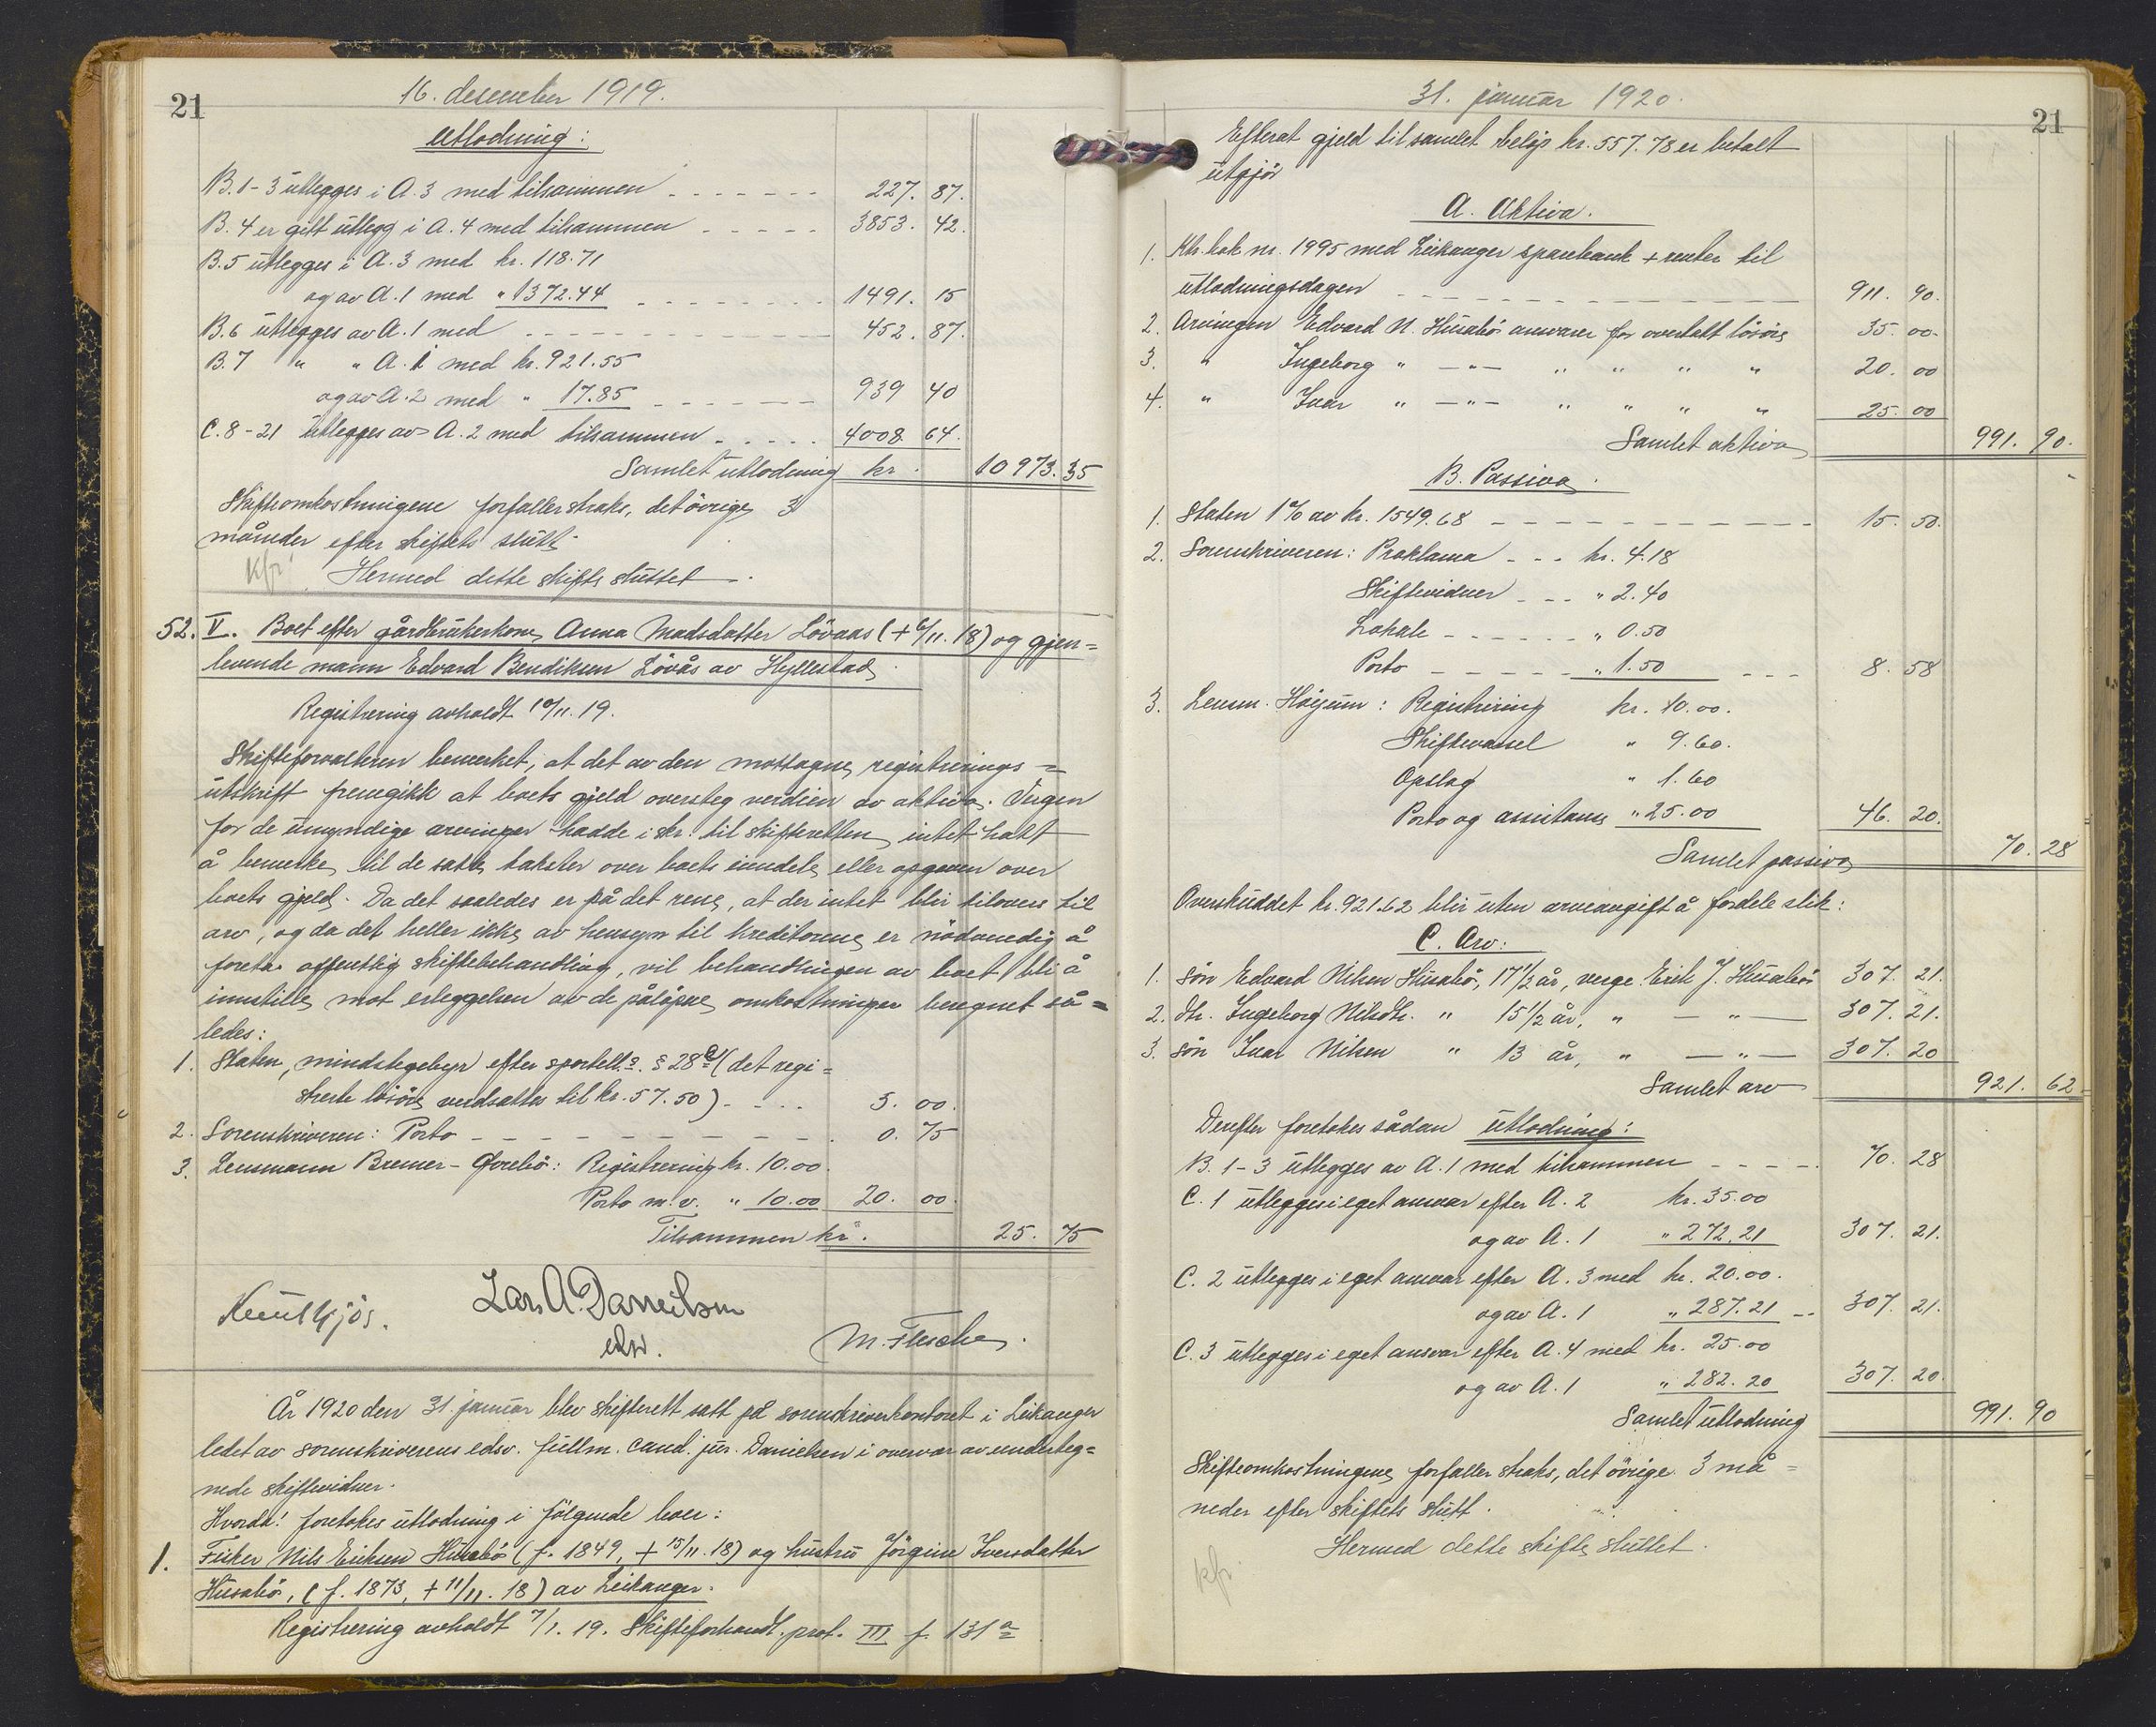 21
16. desember 1919.
Utlodning:
B. 1-3 utlegges i A. 3 med tilsammen - - - - - - - 227. 87.
B. 4 er gitt utlegg i A. 4 med tilsammen - - - - - 3853. 42.
B. 5 utlegges i A. 3 med kr. 118.71
og av A. 1 med " 1372.44 - - - - - - - - 1491. 15
B. 6 utlegges av A. 1 med - - - - - - - - - - - 452. 87.
B. 7 " " A. 1 med kr. 921.55
og av A. 2 med " 17.85 - - - - - - - 939 40
C. 8-21 utlegges av A. 2 med tilsammen - - - - - 4008 64.
Samlet utlodning kr. 10973. 35
Skifteomkostningene forfaller straks, det övrige 3
måneder efter skiftets slutt.
kfr. Hermed dette skifte sluttet.
52. V. Boet efter gårdbrukerkone Anna Madsdatter Lövaas (+ 6/11. 18) og gjen=
levende mann Edvard Bendiksen Lövås av Hyllestad.
Registrering avholdt 10/11. 19.
Skifteforvalteren bemerket, at det av den mottagne registrerings=
utskrift fremgikk at boets gjeld oversteg verdien av aktiva. Ingen
for de umyndige arvinger hadde i skr. til skifteretten intet hatt
å bemerke til de satte takster over boets eiendele eller opgaven over
boets gjeld. Da det saaledes er på det rene, at der intet blir tilovers til
arv, og da det heller ikke av hensyn til kreditorene er nödvendig å
foreta offentlig skiftebehandling, vil behandlingen av boet bli å
innstille mot erleggelsen av de påløpne omkostninger beregnet så=
ledes:
1. Staten, mindstegebyr efter sportell. § 28 a (det regi=
strerte lösöre verdsatte til kr. 57.50) - - - - 5. 00.
2. Sorenskriveren: Porto - - - - - - - - - - - 0. 75
3. Lensmann Bremer-Øvrebö: Registrering kr. 10.00
Porto m. v. " 10.00 20. 00.
Tilsammen kr. 25. 75
Lars A. Danielsen
edsv.
M. Flesche.
År 1920 den 31. januar blev skifterett satt på sorenskriverkontoret i Leikanger
ledet av sorenskriverens edsv. fullm. cand. jur. Danielsen i overvær av underteg=
nede skiftevidner.
Hvorda! foretokes utlodning i fölgende boer:
1. Fisker Nils Eriksen Husabö (f. 1849, + 15/11. 18) og hustru Jörgine Iversdatter
Husabö, (f. 1873, + 11/11. 18) av Leikanger.
Registrering avholdt 7/1. 19. Skifteforhandl. prot. III f. 131 a
31. januar 1920.
21
Efterat gjeld til samlet belöp kr. 557.78 er betalt
utgjör
A. Aktiva.
1. Ktr. bok nr. 1995 med Leikanger sparebank + renter til
utlodningsdagen - - - - - - - - - - - - - 911. 90.
2. Arvingen Edvard N. Husabö ansvarer for overtatt lösöre 35. 00.
3. " Ingeborg " - " - " " " " 20. 00
4. " Ivar " - " - " " " " 25. 00
Samlet aktiva 991. 90.
B. Passiva.
1. Staten 1% av kr. 1549.68 - - - - - - - - - - - 15. 50.
2. Sorenskriveren: Proklama - - - kr. 4.18
Skiftevidner - - - " 2.40
Lokale - - - - - - " 0.50
Porto - - - - - " 1.50 - - - 8. 58
3. Lensm. Höijum: Registrering kr. 10.00.
Skiftevarsel " 9.60.
Opslag " 1.60
Porto og assistanse " 25.00 46. 20.
Samlet passiva 70. 28
Overskuddet kr. 921.62 blir uten arveavgift å fordele slik:
C. Arv:
1. Sön Edvard Nilsen Husabö, 17 1/2 år, verge Erik J. Husabö 307. 21.
2. dtr. Ingeborg Nilsdtr. " 15 1/2 år, " - " - 307. 21.
3. Sön Ivar Nilsen " 13 år, " - " - 307. 20
Samlet arv 921. 62
Derefter foretokes sådan utlodning:
B. 1-3 utlegges av A. 1 med tilsammen - - - - 70. 28
C. 1 utlegges i eget ansvar efter A. 2 kr. 35.00
og av A. 1 " 272.21 307. 21.
C. 2 utlegges i eget ansvar efter A. 3 med kr. 20.00.
og av A. 1 " 287.21 - - 307. 21.
C. 3 utlegges i eget ansvar efter A. 4 med kr. 25.00
og av A. 1 " 282.20 307. 20.
Samlet utlodning 991. 90
Skifteomkostningene forfaller straks, det övrige 3 må=
neder efter skiftets slutt.
Hermed dette skifte sluttet.
kfr.